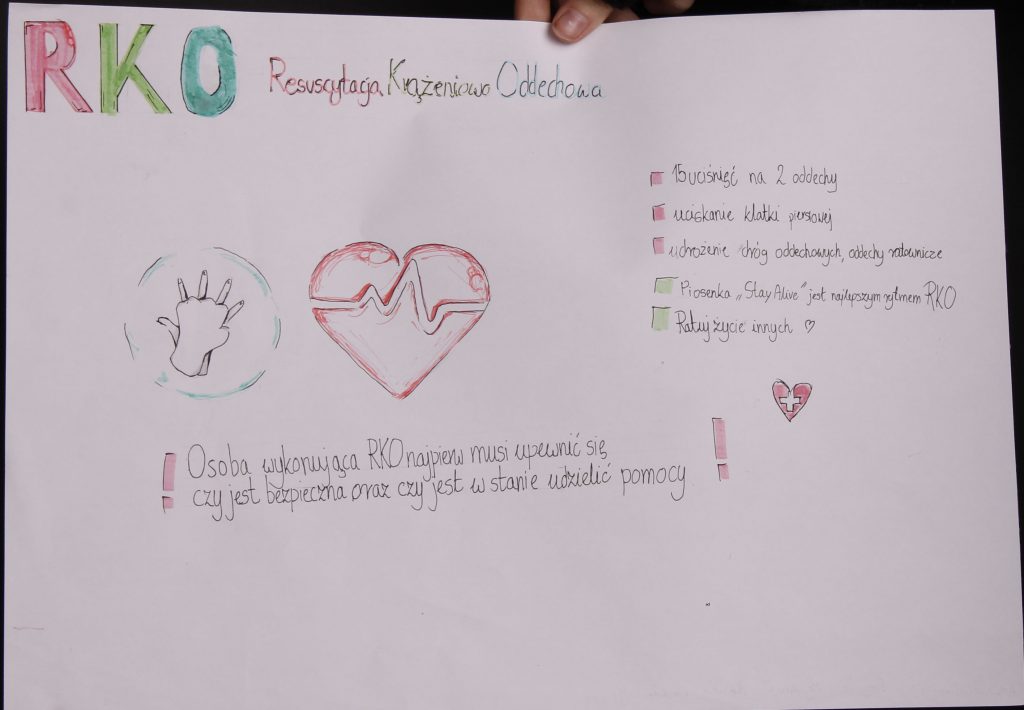 RKO
Resuscytacja Krążeniowo Oddechowa
15 uciśnięć na 2 oddechy
uciskanie klatki piersiowej
udrożenie dróg oddechowych, oddechy ratownicze
Piosenka „Stay Alive" jest najlepszym rytmem RKO
Ratuj życie innych ♡
! Osoba wykonująca RKO najpierw musi upewnić się !
czy jest bezpieczna oraz czy jest w stanie udzielić pomocy